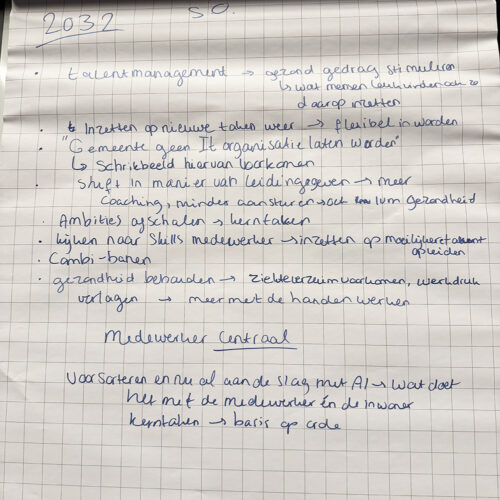 2032 S.O.
• talentmanagement → gezond gedrag stimuleren
↳ wat mensen leuk vinden ook zo
daarop inzetten
• Inzetten op nieuwe taken weer → flexibel in worden
• "Gemeente geen It organisatie laten worden"
↳ Schrikbeeld hiervan voorkomen
• Shift in manier van leidinggeven → meer
coaching, minder aansturen → ook ivm gezondheid
• Ambities afschalen → kerntaken
• kijken naar skills medewerker → inzetten op moeilijkere
opleiden
• Combi-banen
• gezondheid behouden → ziekteverzuim voorkomen, werkdruk
verlagen → meer met de handen werken
Medewerker Centraal
Voorsorteren en nu al aan de slag met AI → wat doet
het met de medewerker én de inwoner
kerntaken → basis op orde